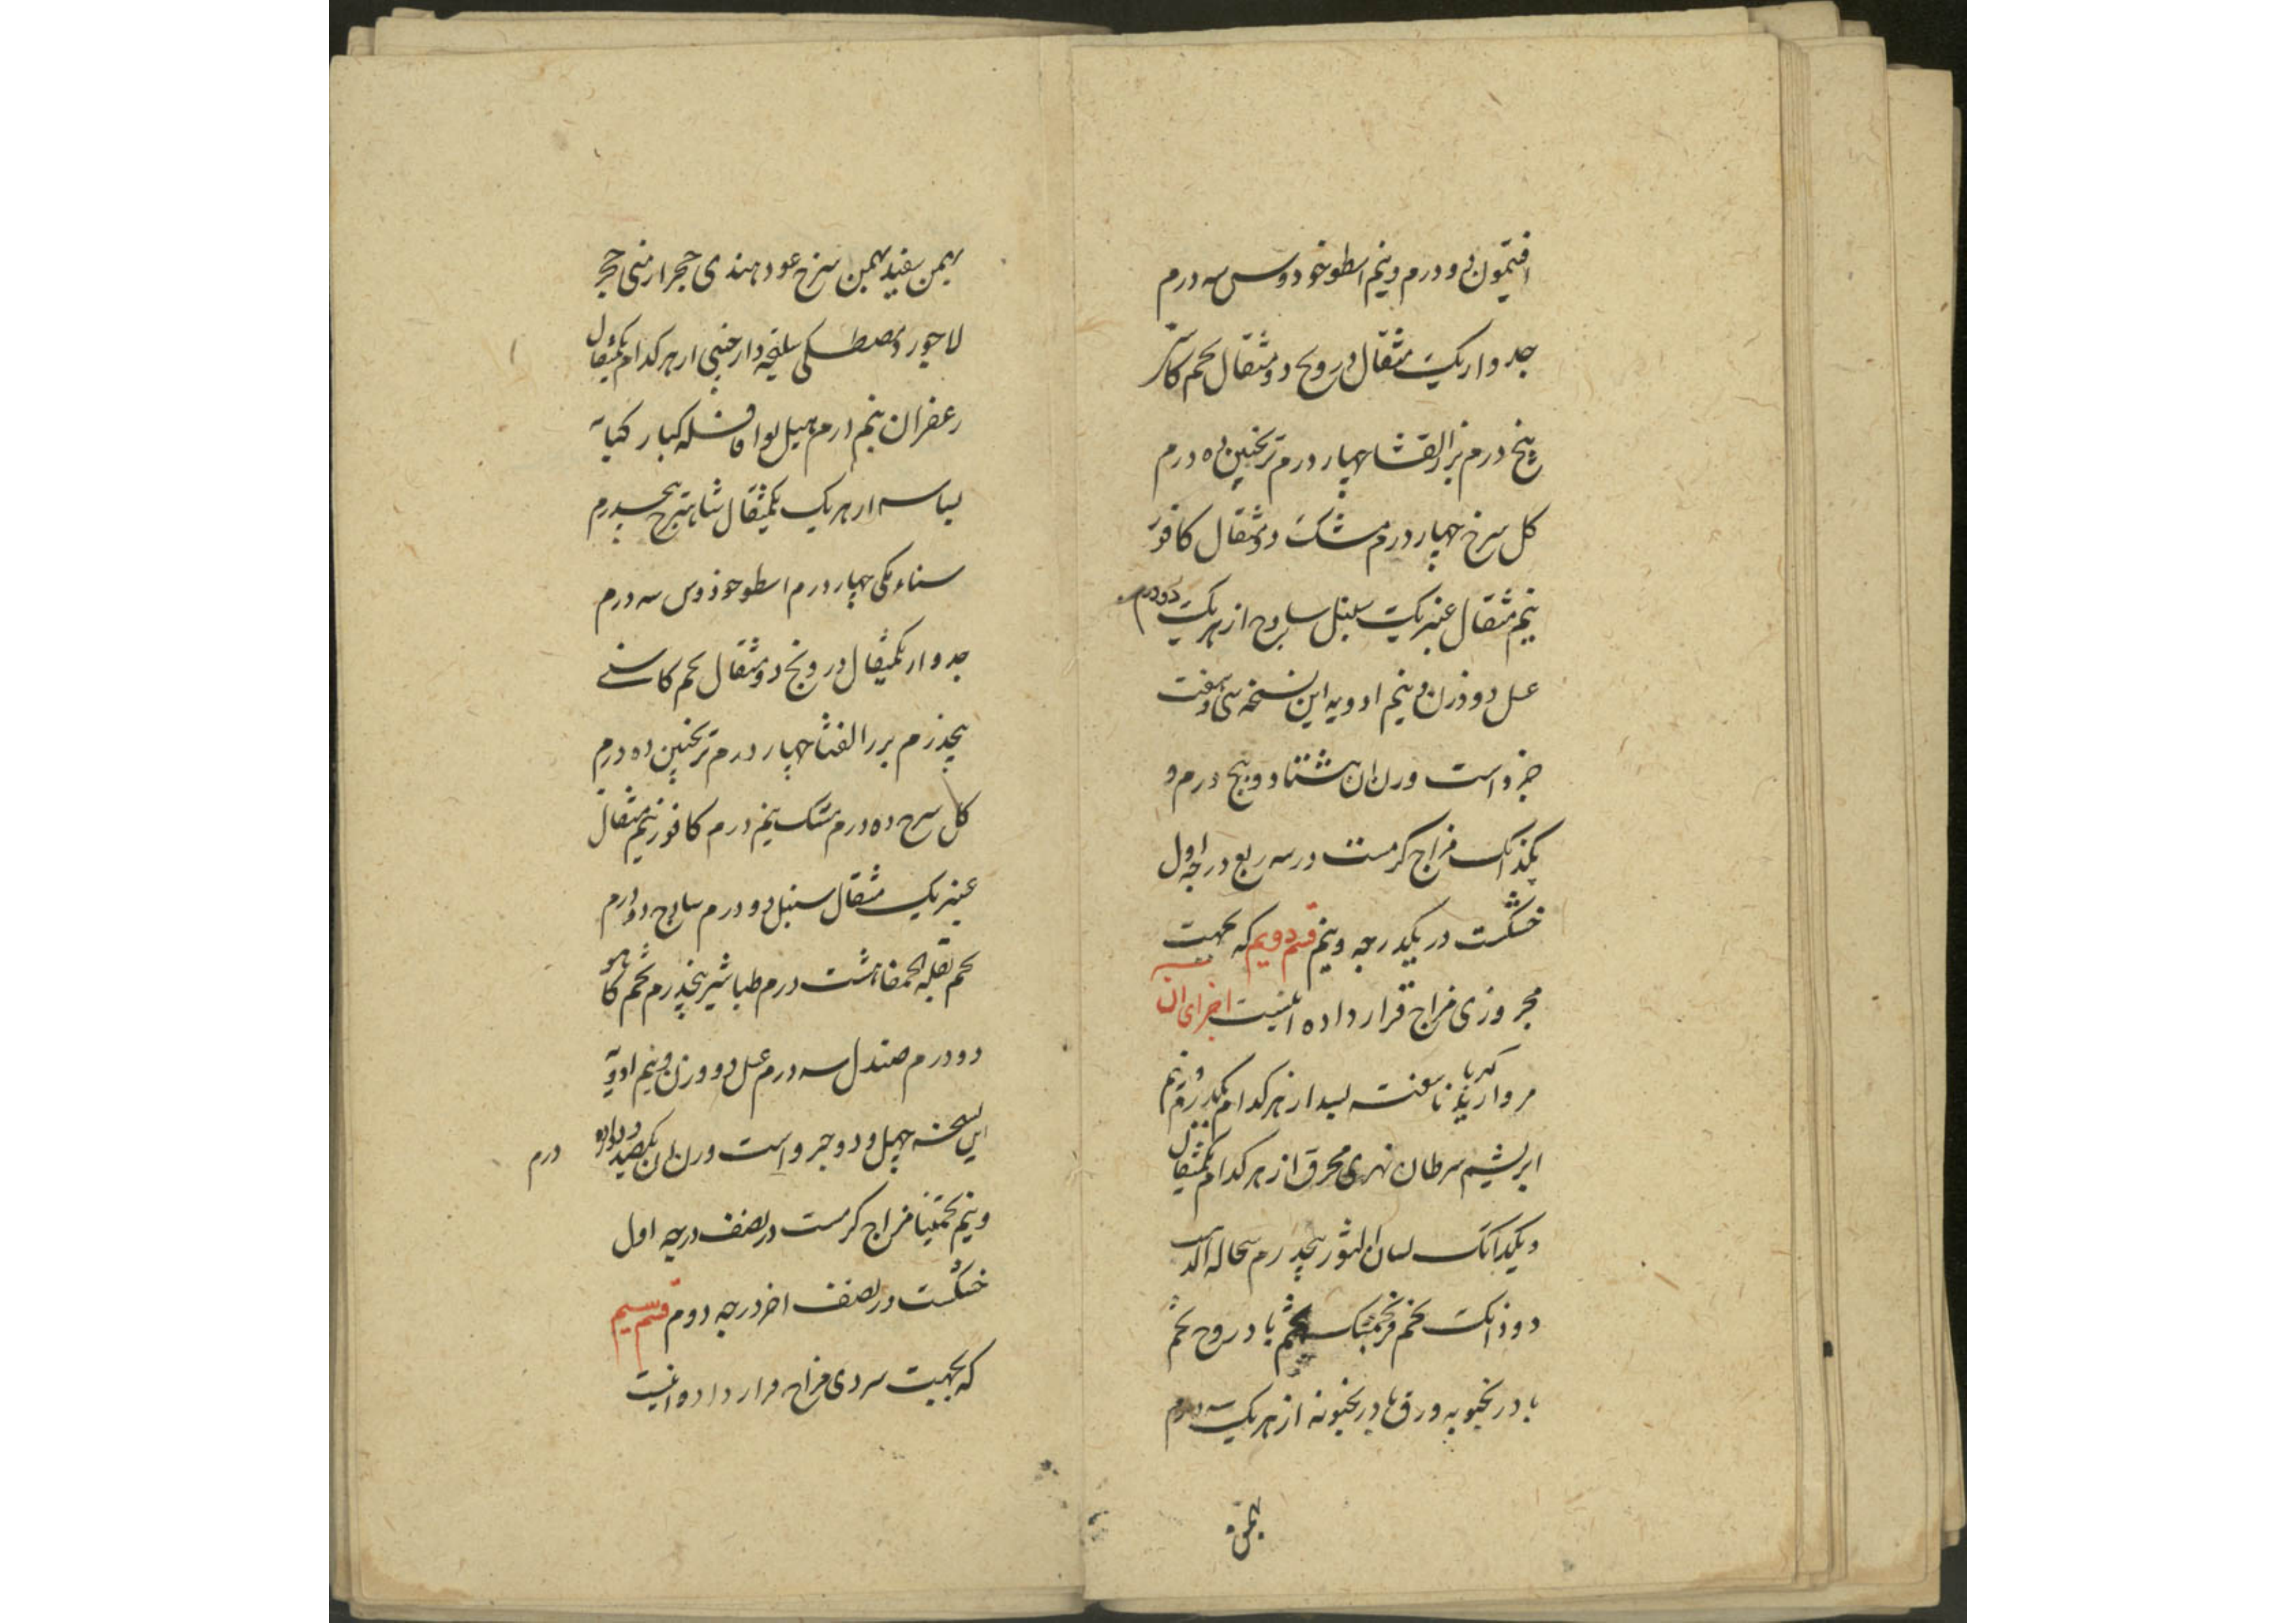 افتیمون دو درم و نیم اسطوخودوس سه درم
جدوار یک مثقال درونج دو مثقال تخم کاسنی
پنج درم بزر القثا چهار درم ترنجبین ده درم
کل سرخ چهار درم مشک دو مثقال کافور
نیم مثقال عنبر یک سنبل سادج از هر یک دو درم
عسل دو وزن و نیم ادویه این نسخه سی و هفت
جزو است وزن ان هشتاد و پنج درم و
یکدانک مزاج کرمست در سه ربع درجه اول
خشکست در یکدرجه و نیم قسم دویم که بجهت
محروری مزاج قرار داده اینست اجزای ان
مروارید ناسفته کهربا بسد از هر کدام یکدرم و نیم
ابریشم سرطان نهری محرق از هر کدام یکمثقال
و یکدانک لسان الثور پنجدرم سحاله الذهب
دو دانک تخم فرنجمشک تخم بادروج تخم
بادرنجبویه ورق بادرنجبویه از هر یک سه درم
بهمن
بهمن سفید بهمن سرخ عود هندی حجر ارمنی حجر
لاجورد مصطکی سلیخه دارچینی از هر کدام یکمثقال
زعفران نیم درم هیل بوا قاقله کبار کبابه
بسباسه از هر یک یکمثقال شاهترج پنجدرم
سناء مکی چهار درم اسطوخوذوس سه درم
جدوار یکمثقال درونج دو مثقال تخم کاسنی
پنجدرم بزر القثا چهار درم ترنجبین ده درم
کل سرخ ده درم مشک نیم درم کافور نیم مثقال
عنبر یک مثقال سنبل دو درم سادج دو درم
تخم بقلة الحمقا هشت درم طباشیر پنجدرم تخم کاهو
دو درم صندل سه درم عسل دو وزن و نیم ادویه
این نسخه چهل و دو جزو است وزن ان یکصد و درم
و نیم تخمینا مزاج کرمست در نصف درجه اول
خشکست در نصف اخر درجه دوم قسم سیم
که بجهت سردی مزاج قرار داده اینست